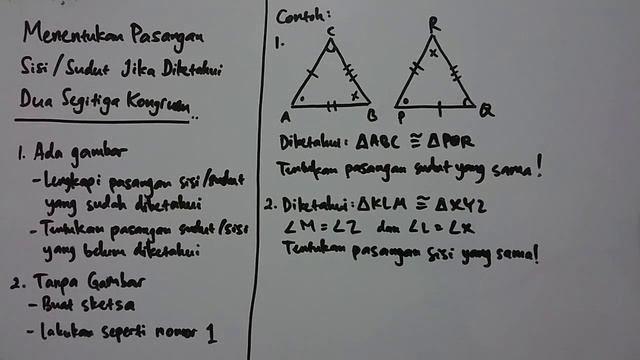 Menentukan Pasangan
Sisi/Sudut Jika Diketahui
Dua Segitiga Kongruen..
1. Ada gambar
- Lengkapi pasangan sisi/sudut
yang sudah diketahui
- Tentukan pasangan sudut/sisi
yang belum diketahui
2. Tanpa Gambar
- Buat sketsa
- Lakukan seperti nomor 1
Contoh:
1.
C
R
x
x
A
B
P
Q
Diketahui: △ABC ≅ △PQR
Tentukan pasangan sudut yang sama!
2. Diketahui: △KLM ≅ △XYZ
∠M = ∠Z dan ∠L = ∠X
Tentukan pasangan sisi yang sama!